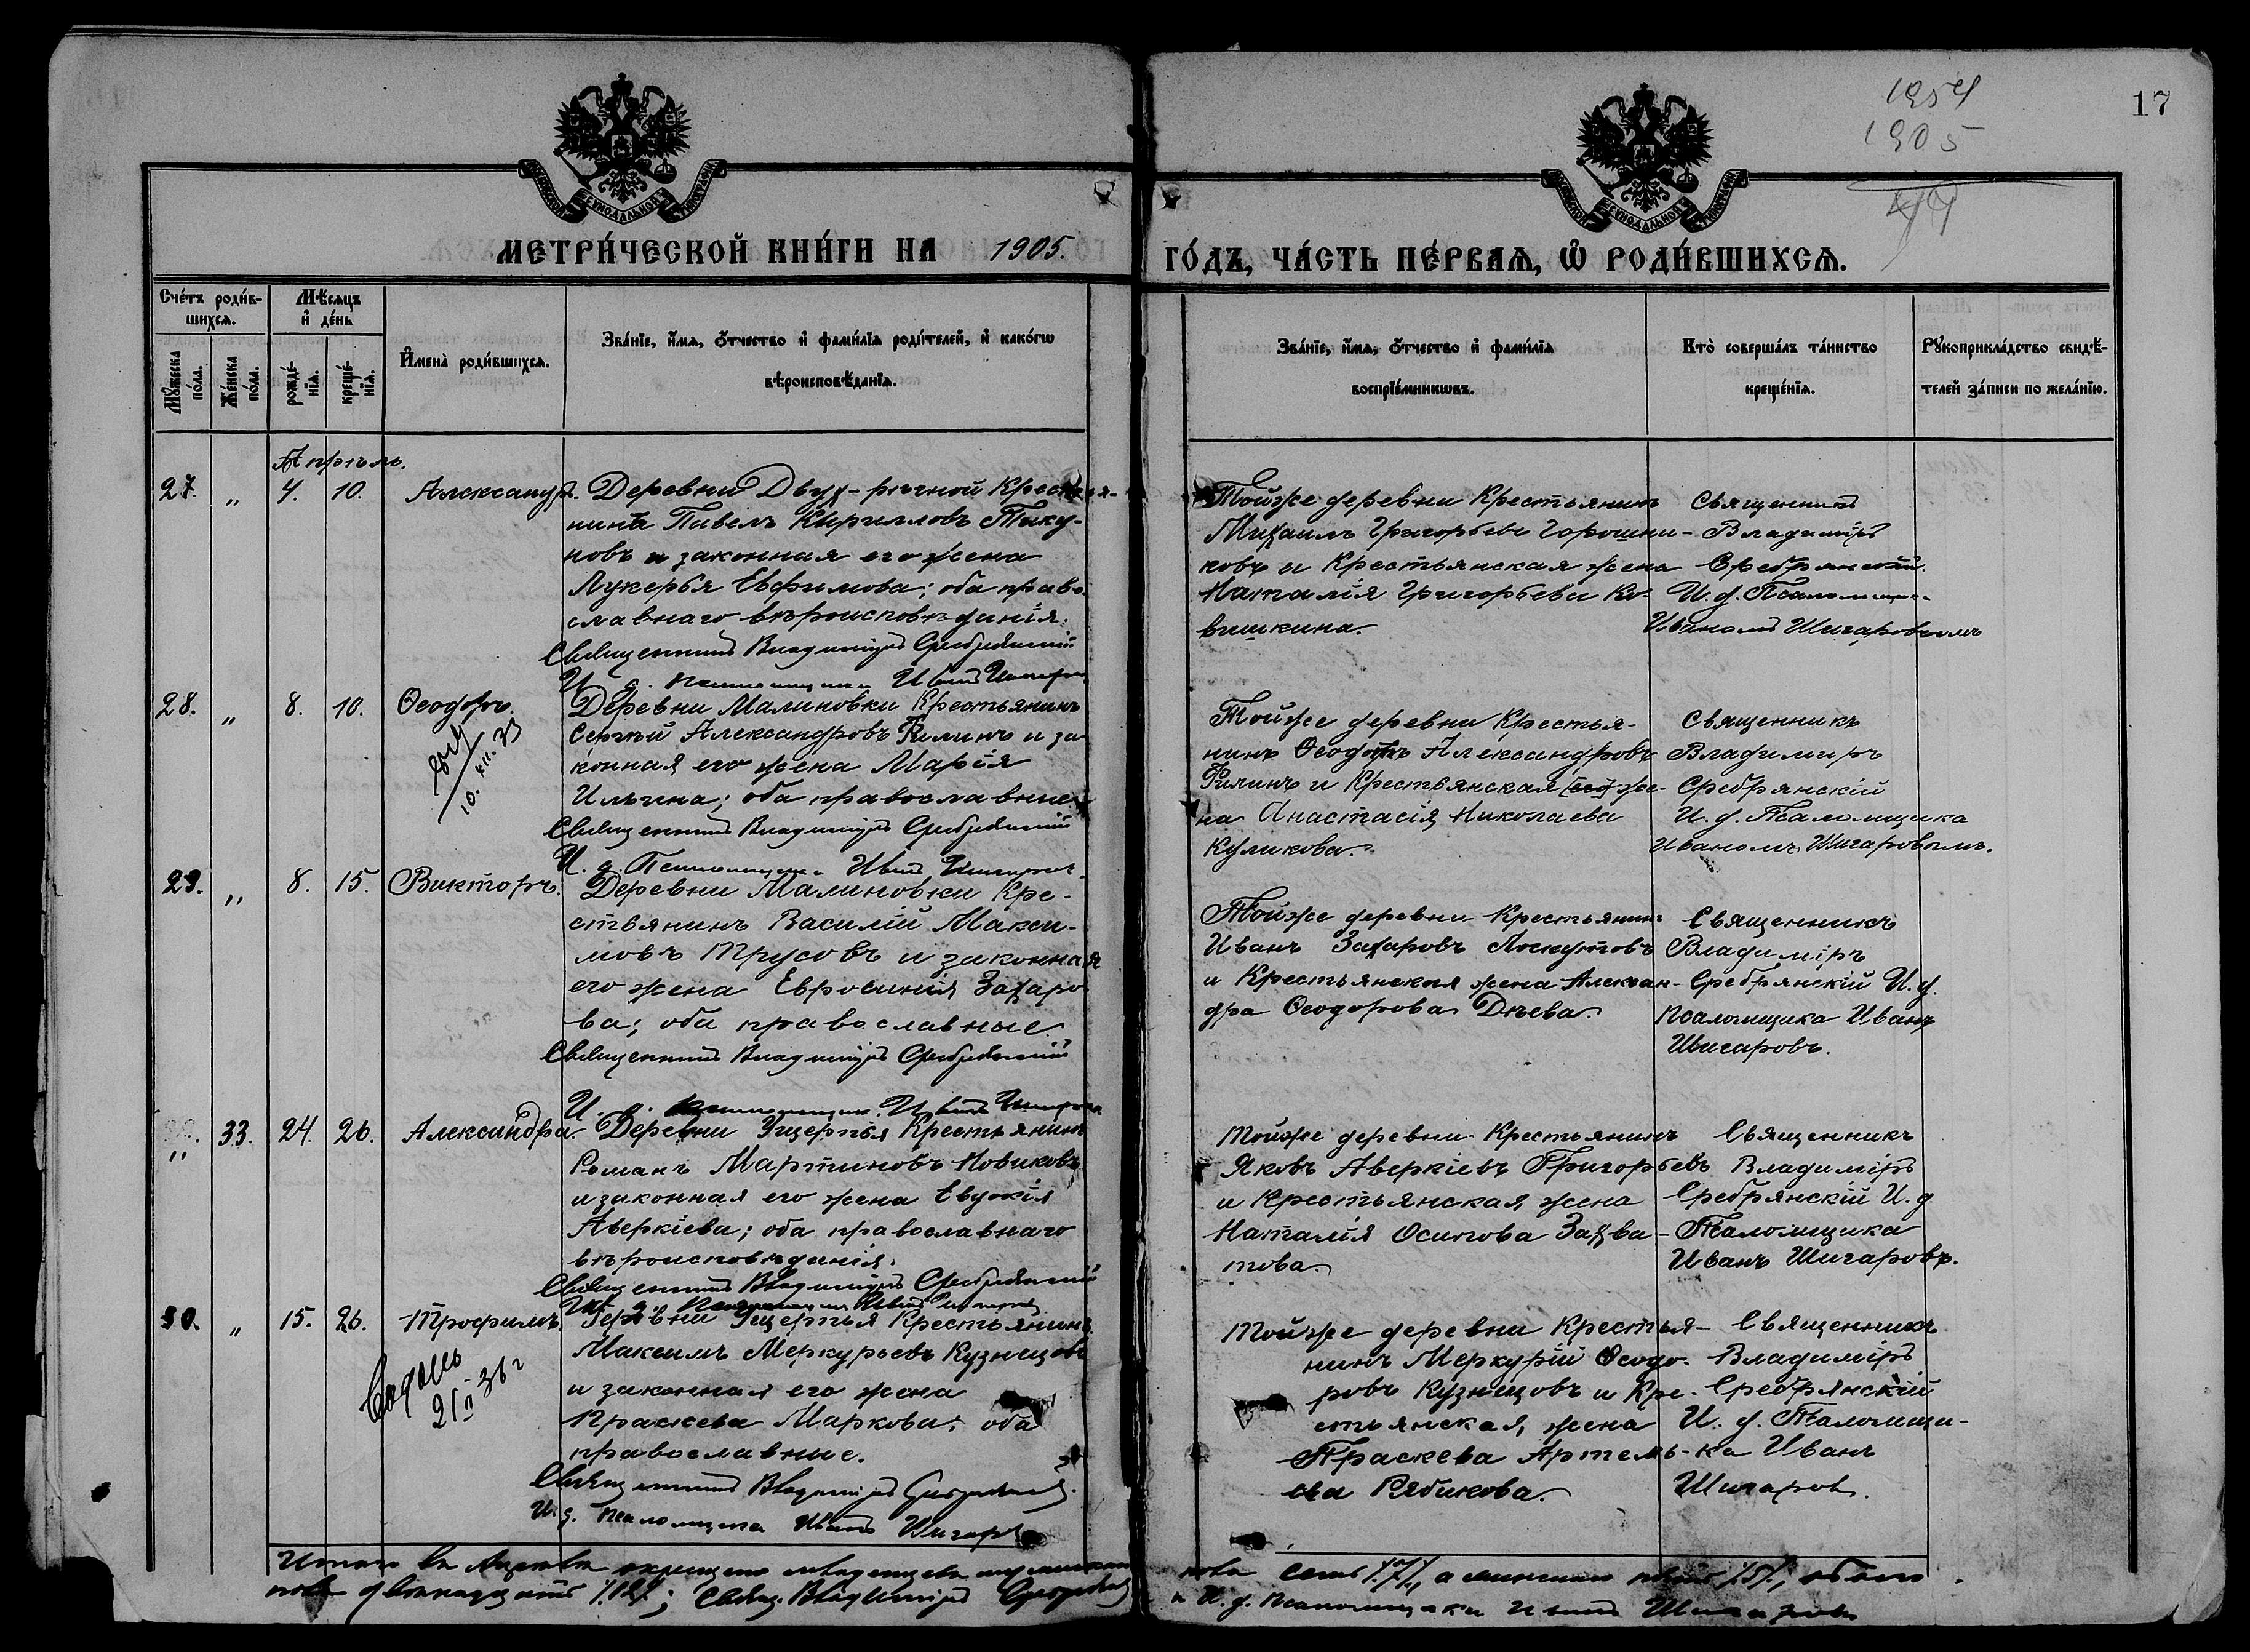 1954
1905
17
МОСКОВСКОЙ СѴНОДАЛЬНОЙ ТИПОГРАФІИ
МОСКОВСКОЙ СѴНОДАЛЬНОЙ ТИПОГРАФІИ
МЕТРИ́ЧЕСКОЙ КНИ́ГИ НА 1905.
ГО́ДЪ, ЧА́СТЬ ПЕ́РВАѦ, Ѡ҆ РОДИ́ВШИХСѦ.
Сче́тъ роди́в-
шихсѧ.
Мѣ́сѧцъ
и҆ де́нь
Мꙋ́жеска
по́ла.
Же́нска
по́ла.
рожде́-
нїѧ.
креще́-
нїѧ.
И҆мена̀ роди́вшихсѧ.
Зва́нїе, и҆́мѧ, ѻ҆́тчество и҆ фами́лїѧ роди́телей, и҆ како́гѡ
вѣроисповѣ́данїѧ.
Зва́нїе, и҆́мѧ, ѻ҆́тчество и҆ фами́лїѧ
воспрїе́мникѡвъ.
Кто̀ соверша́лъ та́инство
креще́нїѧ.
Рꙋкоприкла́дство свидѣ́-
телей за́писи по жела́нїю.
Апрѣль.
27. „ 4. 10. Александръ. Деревни Двух-рѣчной Крестья-
нинъ Павелъ Кирилловъ Тику-
новъ и законная его жена
Лукерья Евфимова; оба право-
славнаго вѣроисповѣданія.
Священникъ Владиміръ Сребрянскій
И. д. Псаломщика Иванъ Шигаровъ
Тойже деревни Крестьянинъ
Михаилъ Григорьевъ Горошни-
ковъ и Крестьянская жена
Наталія Григорьева Ко-
вишкина.
Священникъ
Владиміръ
Сребрянскій.
И. д. Псаломщика
Иваномъ Шигаровымъ
28. „ 8. 10. Ѳеодоръ. Деревни Малиновки Крестьянинъ
Сергѣй Александровъ Филинъ и за-
конная его жена Марія
Ильина; оба православные
Священникъ Владиміръ Сребрянскій
И. д. Псаломщика Иванъ Шигаровъ
10. XII. 33
Тойже деревни Крестья-
нинъ Ѳеодотъ Александровъ
Филинъ и Крестьянская же-
на Анастасія Николаева
Куликова.
Священникъ
Владимиръ
Сребрянскій
И. д. Псаломщика
Иваномъ Шигаровымъ.
29. „ 8. 15. Викторъ. Деревни Малиновки Кре-
стьянинъ Василій Макси-
мовъ Трусовъ и законная
его жена Евросинія Захаро-
ва; оба православные.
Священникъ Владиміръ Сребрянскій
И. д. Псаломщика Иванъ Шигаровъ
Тойже деревни Крестьянинъ
Иванъ Захаровъ Лоскутовъ
и Крестьянская жена Алексан-
дра Ѳеодорова Днева.
Священникъ
Владиміръ
Сребрянскій И. д.
Псаломщика Иванъ
Шигаровъ.
„ 33. 24. 26. Александра. Деревни Ущерпья Крестьянинъ
Романъ Мартиновъ Новиковъ
и законная его жена Евдокія
Аверкіева; оба православнаго
вѣроисповѣданія.
Священникъ Владиміръ Сребрянскій
И. д. Псаломщика Иванъ Шигаровъ
Тойже деревни Крестьянинъ
Яковъ Аверкіевъ Григорьевъ
и Крестьянская жена
Наталія Осипова Захва-
това.
Священникъ
Владиміръ
Сребрянскій И. д
Псаломщика
Иванъ Шигаровъ.
30. „ 15. 26. Трофимъ. Деревни Ущерпья Крестьянинъ
Максимъ Меркурьевъ Кузнецовъ
и законная его жена
Праскева Маркова; оба
православные.
Священникъ Владиміръ Сребрянскій
И. д. Псаломщика Иванъ Шигаровъ
21 II 36 г
Тойже деревни Крестья-
нинъ Меркурій Ѳеодо-
ровъ Кузнецовъ и Кре-
стьянская жена
Праскева Артемь-
ева Рябикова.
Священникъ
Владиміръ
Сребрянскій
И. д. Псаломщи-
ка Иванъ
Шигаровъ.
Итого въ Апрѣлѣ крещено младенцевъ мужскаго
пола семь /7/, а женскаго пять /5/, обоего
пола двѣнадцать /12/; Свящ. Владиміръ Сребрянскій
и И. д. Псаломщика Иванъ Шигаровъ